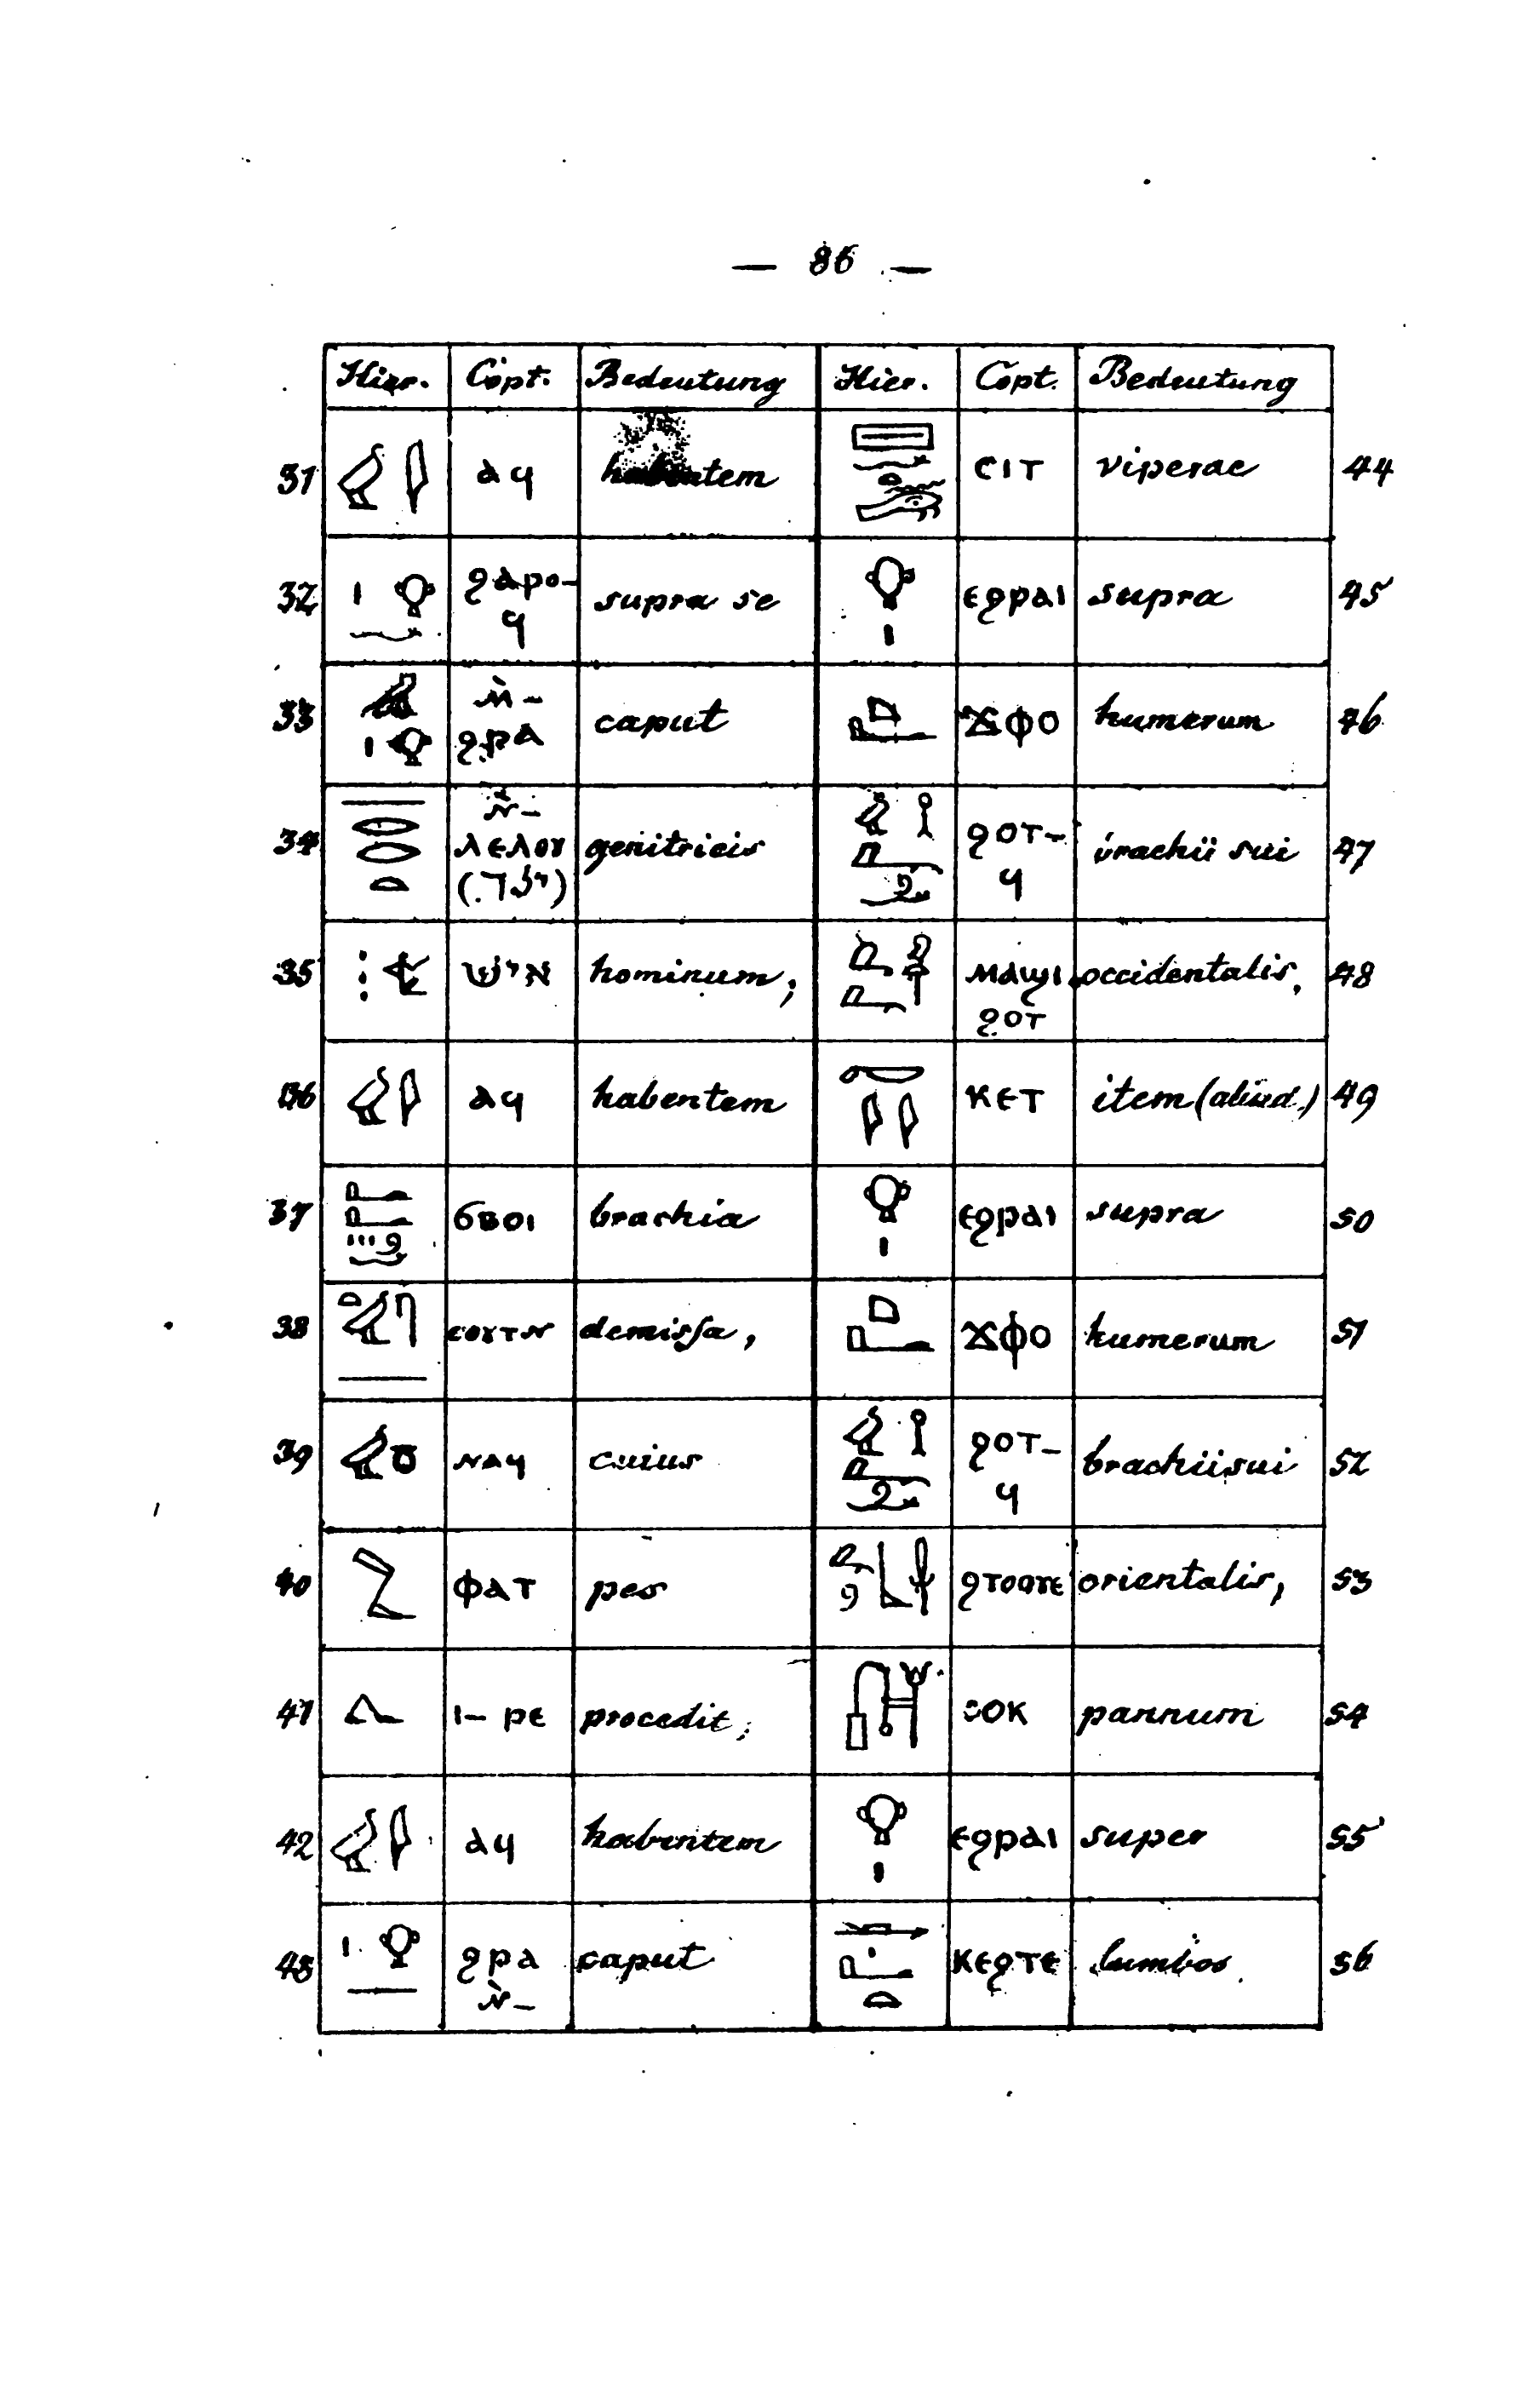 — 86 —
Hier. Copt. Bedeutung Hier. Copt. Bedeutung
31 ⲁϥ habentem ⲥⲓⲧ viperae 44
32 ϩⲁⲣⲟ-ϥ supra se ⲉϩⲣⲁⲓ supra 45
33 ⲙ̀-ϩⲣⲁ caput ϫⲫⲟ humerum 46
34 ⲛ̀-ⲗⲉⲗⲟⲩ (ילד.) genitricis ϩⲟⲧ-ϥ brachii sui 47
35 איש hominum; ⲙⲁϣⲓ ϩⲟⲧ occidentalis, 48
36 ⲁϥ habentem ⲕⲉⲧ item (aliud.) 49
37 ϭⲃⲟⲓ brachia ⲉϩⲣⲁⲓ supra 50
38 ⲥⲟⲩⲧⲛ demissa, ϫⲫⲟ humerum 51
39 ⲛⲁϥ cuius ϩⲟⲧ-ϥ brachii sui 52
40 ⲫⲁⲧ pes ϩⲧⲟⲟⲩⲉ orientalis, 53
41 ⲓ- ⲣⲉ procedit; ⲥⲟⲕ pannum 54
42 ⲁϥ habentem ⲉϩⲣⲁⲓ super 55
43 ϩⲣⲁ ⲛ̀- caput ⲕⲉϩⲧⲉ lumbos 56